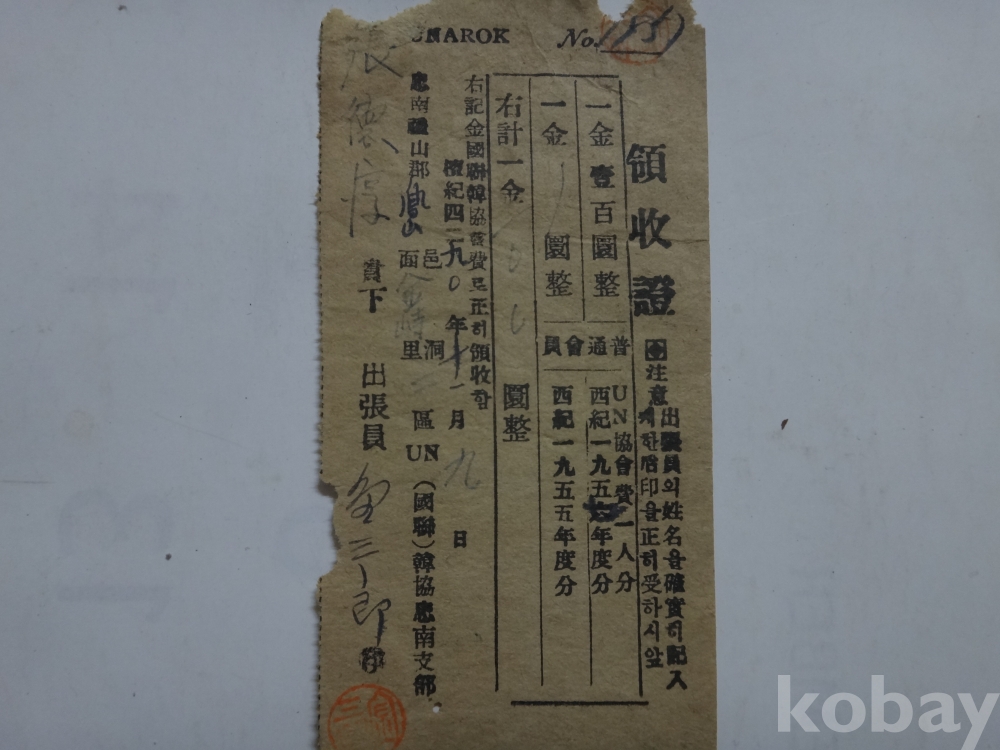 UNAROK No.
領收證
㊉注意 出張員의 姓名을 確實히 記入
케한后印을 正히 受하시앞
一金壹百圜整
普通會員
UN協會費一人分
西紀一九五七年度分
一金 圜整
西紀一九五五年度分
右計一金 100 圜整
右記金國聯韓協會費로 正히 領收함
檀紀四二九0年十一月九日
忠南禮山郡鳳山 邑面 洞里 區 UN(國聯)韓協忠南支部
張 貴下 出張員 金三郎 印
kobay